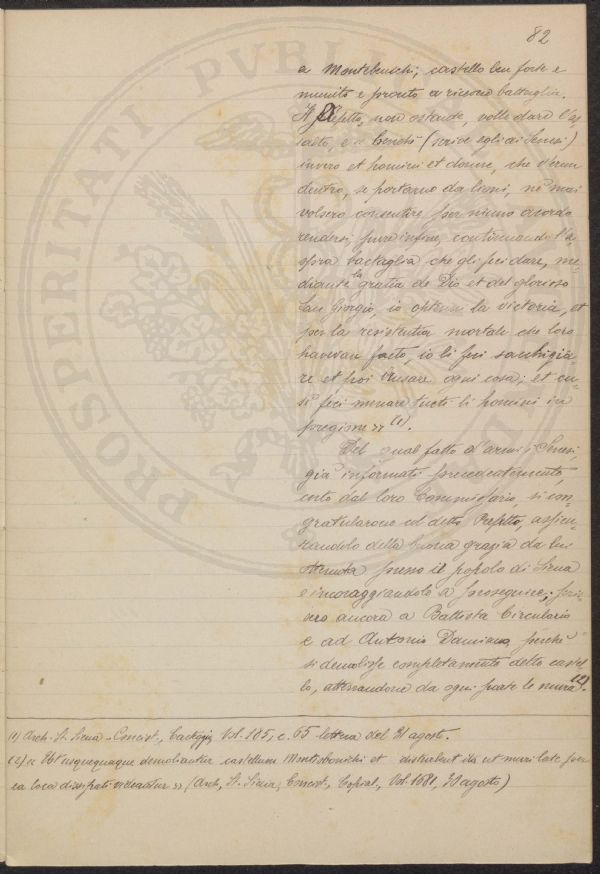 82
a Montebenichi; castello ben forte e
munito e pronto a ricever battaglia.
Il Prefetto, non ostante, volle dare l'as
salto, e « benchè (scrive egli ai Senesi)
invero et homini et donne, che v'eran
dentro, se portorno da lioni, nè mai
volsero consentire per niuno acordo
rendersi, pure infine, continuando l'a
spra battaglia che gli fei dare, me
diante la gratia de Dio et del glorioso
San Giorgio, io optenni la victoria, et
per la resistentia mortale che loro
havevan facto, io li feci sachigia
re et poi brusare ogni cosa; et co
sì feci menare tucti li homini in
pregione » (1).
Del qual fatto d'armi i Senesi,
già informati precedentemente,
certo dal loro Commissario, si con
gratularono col detto Prefetto, assicu
randolo della buona grazia da lui
ottenuta presso il popolo di Siena
e incoraggiandolo a proseguire; scris
sero ancora a Battista
e ad Antonio Damiano perchè
si demolisse completamente detto castel
lo, atterrandone da ogni parte le mura (2).
(1) Arch. St. Siena - Concist., Carteggio, Vol. 185, c. 65 lettera del 31 agosto.
(2) « Ut usquequaque demoliantur castellum Montisbenichi et distrahent ita ut muri late per
ea loca dissipati videantur » (Arch. St. Siena, Concist., Copial., Vol. 1681, 30 agosto)
PROSPERITATI PVBLICAE